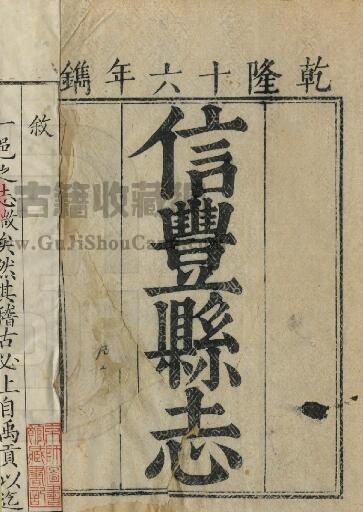 乾隆十六年鐫
信豐縣志
敘
一邑之志微矣然其稽古必上自禹貢以迄
古籍收藏
www.GuJiShouCa